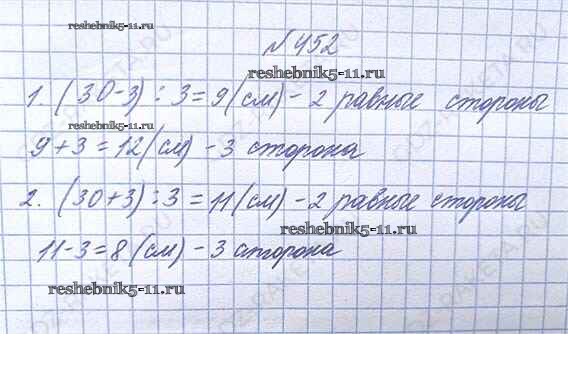 reshebnik5-11.ru
№452
reshebnik5-11.ru
1. (30-3) : 3 = 9(см) - 2 равные стороны
reshebnik5-11.ru
9+3=12(см) - 3 сторона
2. (30+3) : 3 = 11(см) - 2 равные стороны
reshebnik5-11.ru
11-3=8(см) - 3 сторона
reshebnik5-11.ru